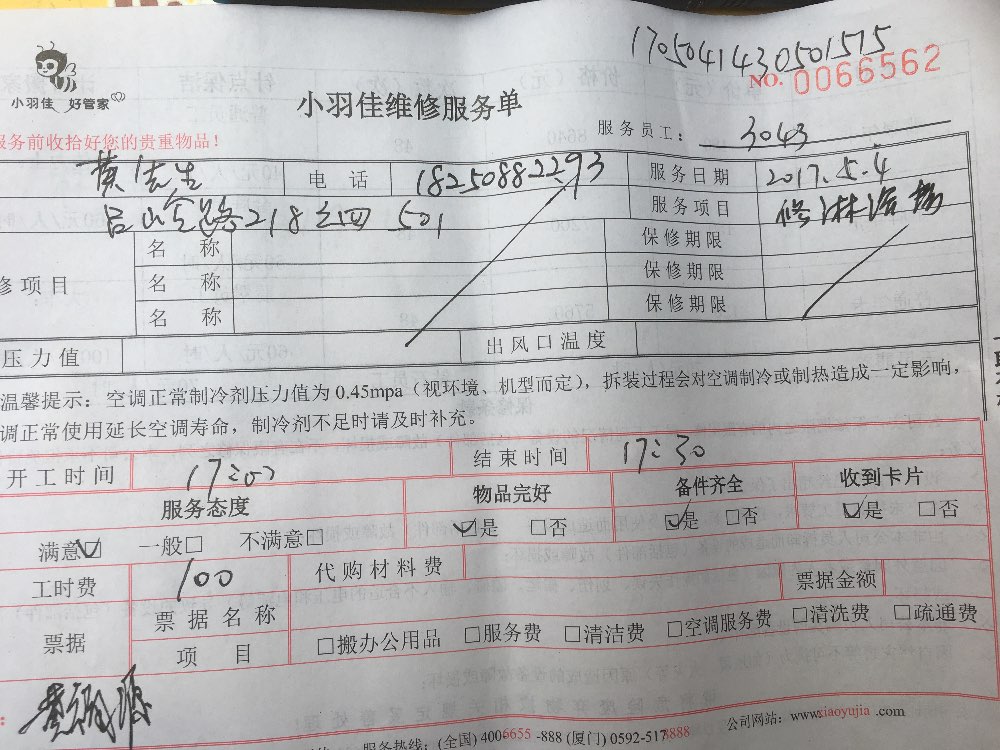 1705041430501515
小羽佳 好管家
NO. 0066562
小羽佳维修服务单
服务前收拾好您的贵重物品！
服务员工： 3043
黄先生 电话 18250882293 服务日期 2017.5.4
吕岭路218之四 501 服务项目 修淋浴
名称 保修期限
修项目 名称 保修期限
名称 保修期限
压力值 出风口温度
温馨提示：空调正常制冷剂压力值为0.45mpa（视环境、机型而定），拆装过程会对空调制冷或制热造成一定影响，
调正常使用延长空调寿命，制冷剂不足时请及时补充。
开工时间 17:00 结束时间 17:30
服务态度 物品完好 备件齐全 收到卡片
满意☑ 一般□ 不满意□ ☑是 □否 ☑是 □否 ☑是 □否
工时费 100 代购材料费 票据金额
票据 票据名称
项目 □搬办公用品 □服务费 □清洁费 □空调服务费 □清洗费 □疏通费
公司网站：www.xiaoyujia.com
服务热线：(全国) 4006655-888 (厦门) 0592-5178888